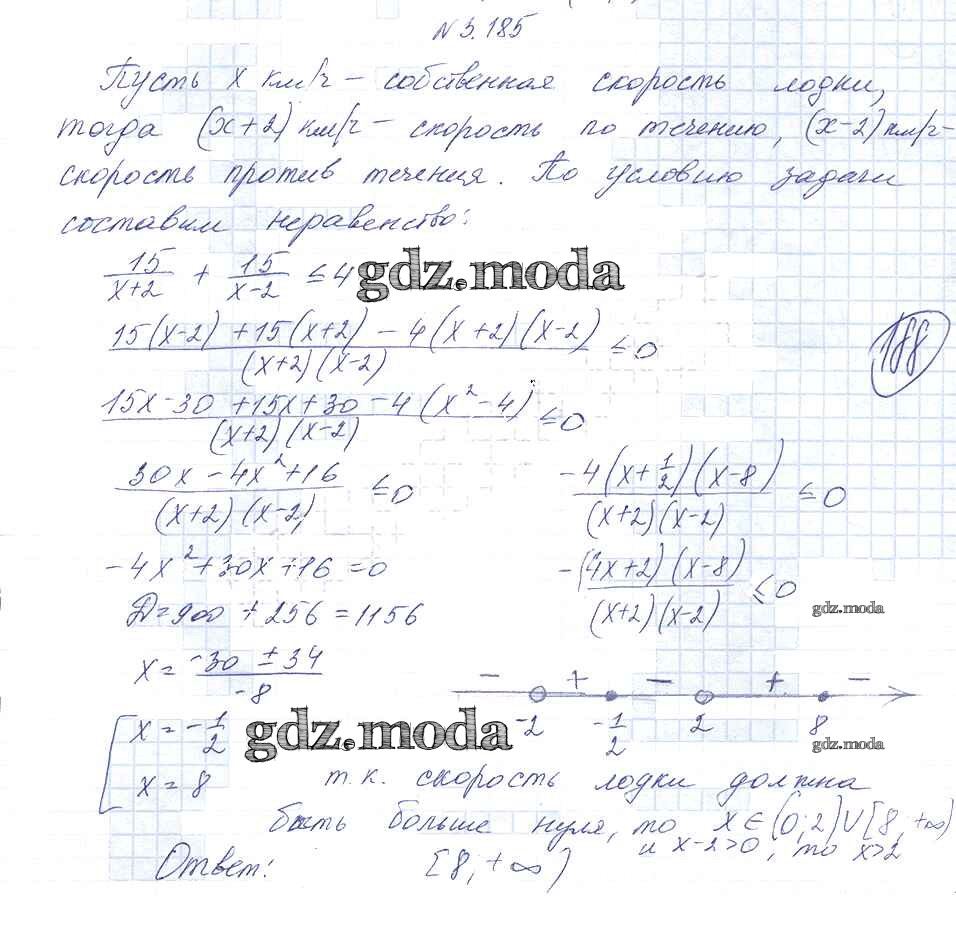 N 3.185
Пусть x км/ч – собственная скорость лодки,
тогда (x+2) км/ч – скорость по течению, (x-2) км/ч –
скорость против течения. По условию задачи
составим неравенство:
15/(x+2) + 15/(x-2) ≤ 4
gdz.moda
(15(x-2) + 15(x+2) - 4(x+2)(x-2))/((x+2)(x-2)) ≤ 0
188
(15x-30+15x+30-4(x²-4))/((x+2)(x-2)) ≤ 0
(30x-4x²+16)/((x+2)(x-2)) ≤ 0
-4x²+30x+16=0
D=900+256=1156
x = (-30±34)/-8
[ x = -1/2
x = 8
(-4(x+1/2)(x-8))/((x+2)(x-2)) ≤ 0
(-(4x+2)(x-8))/((x+2)(x-2)) ≤ 0
gdz.moda
– + – + –
-2 -1/2 2 8
gdz.moda
gdz.moda
т.к. скорость лодки должна
быть больше нуля, то x∈(0;2)∪[8;+∞)
и x-2>0, то x>2
Ответ: [8;+∞)